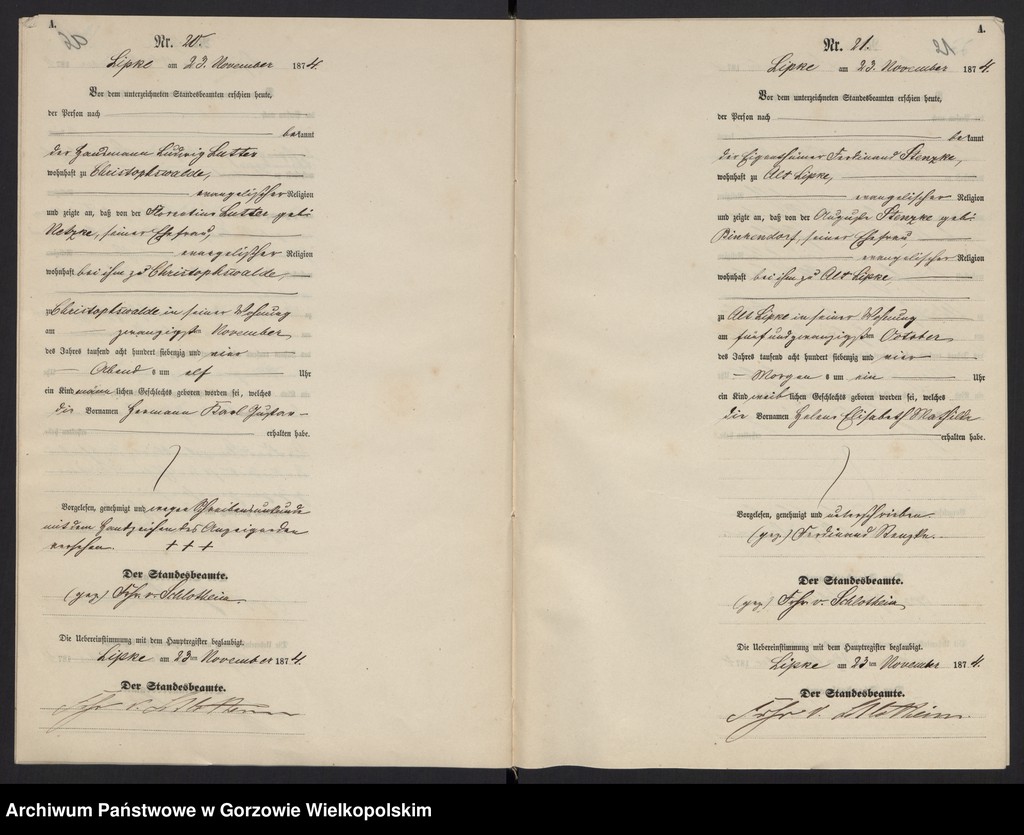 A.
Nr. 20.
Lipke am 23. November 1874.
Vor dem unterzeichneten Standesbeamten erschien heute,
der Person nach
bekannt
der Ludwig Lutter
wohnhaft zu Christophswalde,
evangelischer Religion
und zeigte an, daß von der Florentine Lutter geb:
Netzke, seiner Ehefrau,
evangelischer Religion
wohnhaft bei ihm zu Christophswalde,
zu Christophswalde in seiner Wohnung
am zwanzigsten November
des Jahres tausend acht hundert siebenzig und vier
Abends um elf Uhr
ein Kind männlichen Geschlechts geboren worden sei, welches
die Vornamen Hermann Karl Gustav
erhalten habe.
Vorgelesen, genehmigt und wegen Schreibensunkunde
mit dem Handzeichen des Anzeigenden
versehen. + + +
Der Standesbeamte.
(gez) Frhr v. Schlotheim.
Die Uebereinstimmung mit dem Hauptregister beglaubigt.
Lipke am 23ten November 1874.
Der Standesbeamte.
Frhr v. Schlotheim
A.
21
Nr. 21.
Lipke am 23. November 1874.
Vor dem unterzeichneten Standesbeamten erschien heute,
der Person nach
bekannt
der Eigenthümer Ferdinand Stenzke,
wohnhaft zu Alt Lipke,
evangelischer Religion
und zeigte an, daß von der Auguste Stenzke geb:
Binkendorf, seiner Ehefrau
evangelischer Religion
wohnhaft bei ihm zu Alt Lipke,
zu Alt Lipke in seiner Wohnung
am fünf und zwanzigsten October
des Jahres tausend acht hundert siebenzig und vier
Morgens um ein Uhr
ein Kind weiblichen Geschlechts geboren worden sei, welches
die Vornamen Helene Elisabeth Mathilde
erhalten habe.
Vorgelesen, genehmigt und unterschrieben
(gez.) Ferdinand Stenzke.
Der Standesbeamte.
(gez) Frhr v. Schlotheim
Die Uebereinstimmung mit dem Hauptregister beglaubigt.
Lipke am 23ten November 1874.
Der Standesbeamte.
Frhr v. Schlotheim.
Archiwum Państwowe w Gorzowie Wielkopolskim